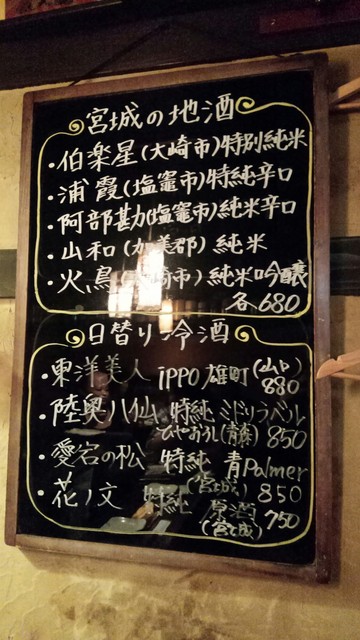 宮城の地酒
・伯楽星(大崎市)特別純米
・浦霞(塩竈市)特純辛口
・阿部勘(塩竈市)純米辛口
・山和(加美郡)純米
・火鳥( 崎市)純米吟醸
各680
日替り冷酒
・東洋美人 IPPO 雄町(山口)
880
・陸奥八仙 特純 ミドリラベル
ひやおろし(青森) 850
・愛宕の松 特純 青Palmer
(宮城) 850
・花ノ文 特純 原酒 750
(宮城)